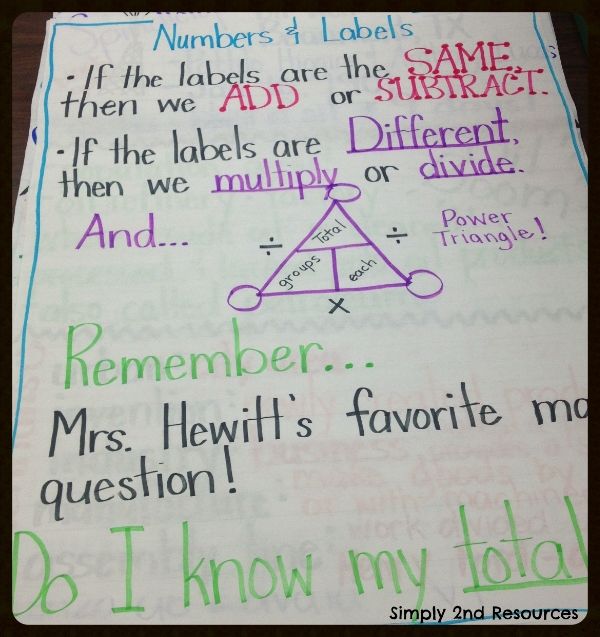 Numbers & Labels
· If the labels are the SAME,
then we ADD or SUBTRACT.
· If the labels are Different,
then we multiply or divide.
And...
Power
Triangle!
÷ Total ÷
groups each
x
Remember...
Mrs. Hewitt's favorite ma
question!
Do I know my total
Simply 2nd Resources